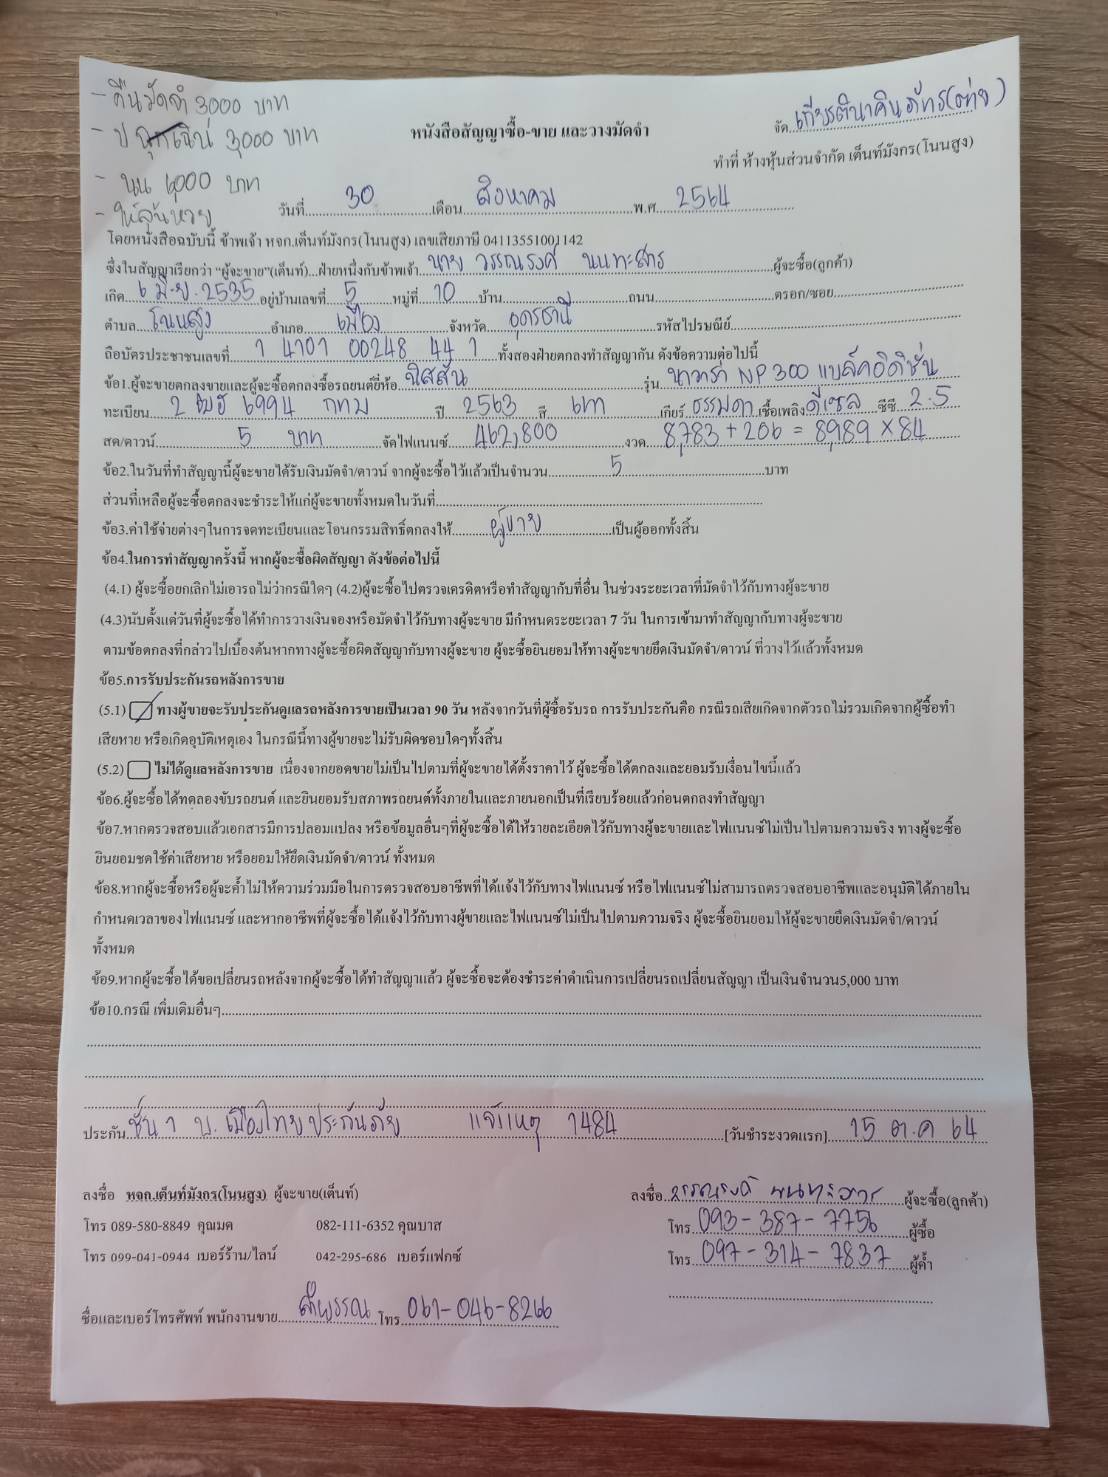 - คืนมัดจำ 3000 บาท
- ป ฉุกเฉิน 3,000 บาท
- นน 6,000 บาท
- ให้ลุ้นหวย
จัด เกียรตินาคินภัทร(ต่าย)
หนังสือสัญญาซื้อ-ขาย และวางมัดจำ
ทำที่ ห้างหุ้นส่วนจำกัด เต็นท์มังกร(โนนสูง)
วันที่ 30 เดือน สิงหาคม พ.ศ 2564
โดยหนังสือฉบับนี้ ข้าพเจ้า หจก.เต็นท์มังกร(โนนสูง) เลขเสียภาษี 04113551001142
ซึ่งในสัญญาเรียกว่า "ผู้จะขาย"(เต็นท์)...ฝ่ายหนึ่งกับข้าพเจ้า นาย วรรณรงค์ นนทะสิทร ผู้จะซื้อ(ลูกค้า)
เกิด 6 มิ.ย. 2535 อยู่บ้านเลขที่ 5 หมู่ที่ 10 บ้าน ถนน ตรอก/ซอย
ตำบล โนนสูง อำเภอ เมือง จังหวัด อุดรธานี รหัสไปรษณีย์
ถือบัตรประชาชนเลขที่ 1 4101 00248 44 1 ทั้งสองฝ่ายตกลงทำสัญญากัน ดังข้อความต่อไปนี้
ข้อ1.ผู้จะขายตกลงขายและผู้จะซื้อตกลงซื้อรถยนต์ยี่ห้อ นิสสัน รุ่น นาวาร่า NP 300 แบล็คอิดิชั่น
ทะเบียน 2 ฒฮ 6994 กทม ปี 2563 สี เทา เกียร์ ธรรมดา เชื้อเพลิง ดีเซล ซีซี 2.5
สด/ดาวน์ 5 บาท จัดไฟแนนซ์ 462,800 งวด 8,783 + 206 = 8,989 × 84
ข้อ2.ในวันที่ทำสัญญานี้ผู้จะขายได้รับเงินมัดจำ/ดาวน์ จากผู้จะซื้อไว้แล้วเป็นจำนวน 5 บาท
ส่วนที่เหลือผู้จะซื้อตกลงจะชำระให้แก่ผู้จะขายทั้งหมดในวันที่
ข้อ3.ค่าใช้จ่ายต่างๆในการจดทะเบียนและโอนกรรมสิทธิ์ตกลงให้ ผู้ขาย เป็นผู้ออกทั้งสิ้น
ข้อ4.ในการทำสัญญาครั้งนี้ หากผู้จะซื้อผิดสัญญา ดังข้อต่อไปนี้
(4.1) ผู้จะซื้อยกเลิกไม่เอารถไม่ว่ากรณีใดๆ (4.2)ผู้จะซื้อไปตรวจเครดิตหรือทำสัญญากับที่อื่น ในช่วงระยะเวลาที่มัดจำไว้กับทางผู้จะขาย
(4.3)นับตั้งแต่วันที่ผู้จะซื้อได้ทำการวางเงินจองหรือมัดจำไว้กับทางผู้จะขาย มีกำหนดระยะเวลา 7 วัน ในการเข้ามาทำสัญญากับทางผู้จะขาย
ตามข้อตกลงที่กล่าวไปเบื้องต้นหากทางผู้จะซื้อผิดสัญญากับทางผู้จะขาย ผู้จะซื้อยินยอมให้ทางผู้จะขายยึดเงินมัดจำ/ดาวน์ ที่วางไว้แล้วทั้งหมด
ข้อ5.การรับประกันรถหลังการขาย
(5.1) ทางผู้ขายจะรับประกันดูแลรถหลังการขายเป็นเวลา 90 วัน หลังจากวันที่ผู้ซื้อรับรถ การรับประกันคือ กรณีรถเสียเกิดจากตัวรถ ไม่รวมเกิดจากผู้ซื้อทำ
เสียหาย หรือเกิดอุบัติเหตุเอง ในกรณีนี้ทางผู้ขายจะไม่รับผิดชอบใดๆทั้งสิ้น
(5.2) ไม่ได้ดูแลหลังการขาย เนื่องจากยอดขายไม่เป็นไปตามที่ผู้จะขายได้ตั้งราคาไว้ ผู้จะซื้อได้ตกลงและยอมรับเงื่อนไขนี้แล้ว
ข้อ6.ผู้จะซื้อได้ทดลองขับรถยนต์ และยินยอมรับสภาพรถยนต์ทั้งภายในและภายนอกเป็นที่เรียบร้อยแล้วก่อนตกลงทำสัญญา
ข้อ7.หากตรวจสอบแล้วเอกสารมีการปลอมแปลง หรือข้อมูลอื่นๆที่ผู้จะซื้อได้ให้รายละเอียดไว้กับทางผู้จะขายและไฟแนนซ์ไม่เป็นไปตามความจริง ทางผู้จะซื้อ
ยินยอมชดใช้ค่าเสียหาย หรือยอมให้ยึดเงินมัดจำ/ดาวน์ ทั้งหมด
ข้อ8.หากผู้จะซื้อหรือผู้จะค้ำไม่ให้ความร่วมมือในการตรวจสอบอาชีพที่ได้แจ้งไว้กับทางไฟแนนซ์ หรือไฟแนนซ์ไม่สามารถตรวจสอบอาชีพและอนุมัติได้ภายใน
กำหนดเวลาของไฟแนนซ์ และหากอาชีพที่ผู้จะซื้อได้แจ้งไว้กับทางผู้ขายและไฟแนนซ์ไม่เป็นไปตามความจริง ผู้จะซื้อยินยอมให้ผู้จะขายยึดเงินมัดจำ/ดาวน์
ทั้งหมด
ข้อ9.หากผู้จะซื้อได้ขอเปลี่ยนรถหลังจากผู้จะซื้อได้ทำสัญญาแล้ว ผู้จะซื้อจะต้องชำระค่าดำเนินการเปลี่ยนรถเปลี่ยนสัญญา เป็นเงินจำนวน5,000 บาท
ข้อ10.กรณี เพิ่มเติมอื่นๆ
ประกัน ชั้น 1 บ. เมืองไทยประกันภัย แจ้งเหตุ 1484 [วันชำระงวดแรก] 15 ต.ค 64
ลงชื่อ หจก.เต็นท์มังกร(โนนสูง) ผู้จะขาย(เต็นท์) ลงชื่อ วรรณรงค์ ผู้จะซื้อ(ลูกค้า)
โทร 089-580-8849 คุณมด 082-111-6352 คุณบาส โทร 093-387-7756 ผู้ซื้อ
โทร 099-041-0944 เบอร์ร้าน/ไลน์ 042-295-686 เบอร์แฟกซ์ โทร 097-314-7837 ผู้ค้ำ
ชื่อและเบอร์โทรศัพท์ พนักงานขาย ลำพรรณ โทร 061-046-8266